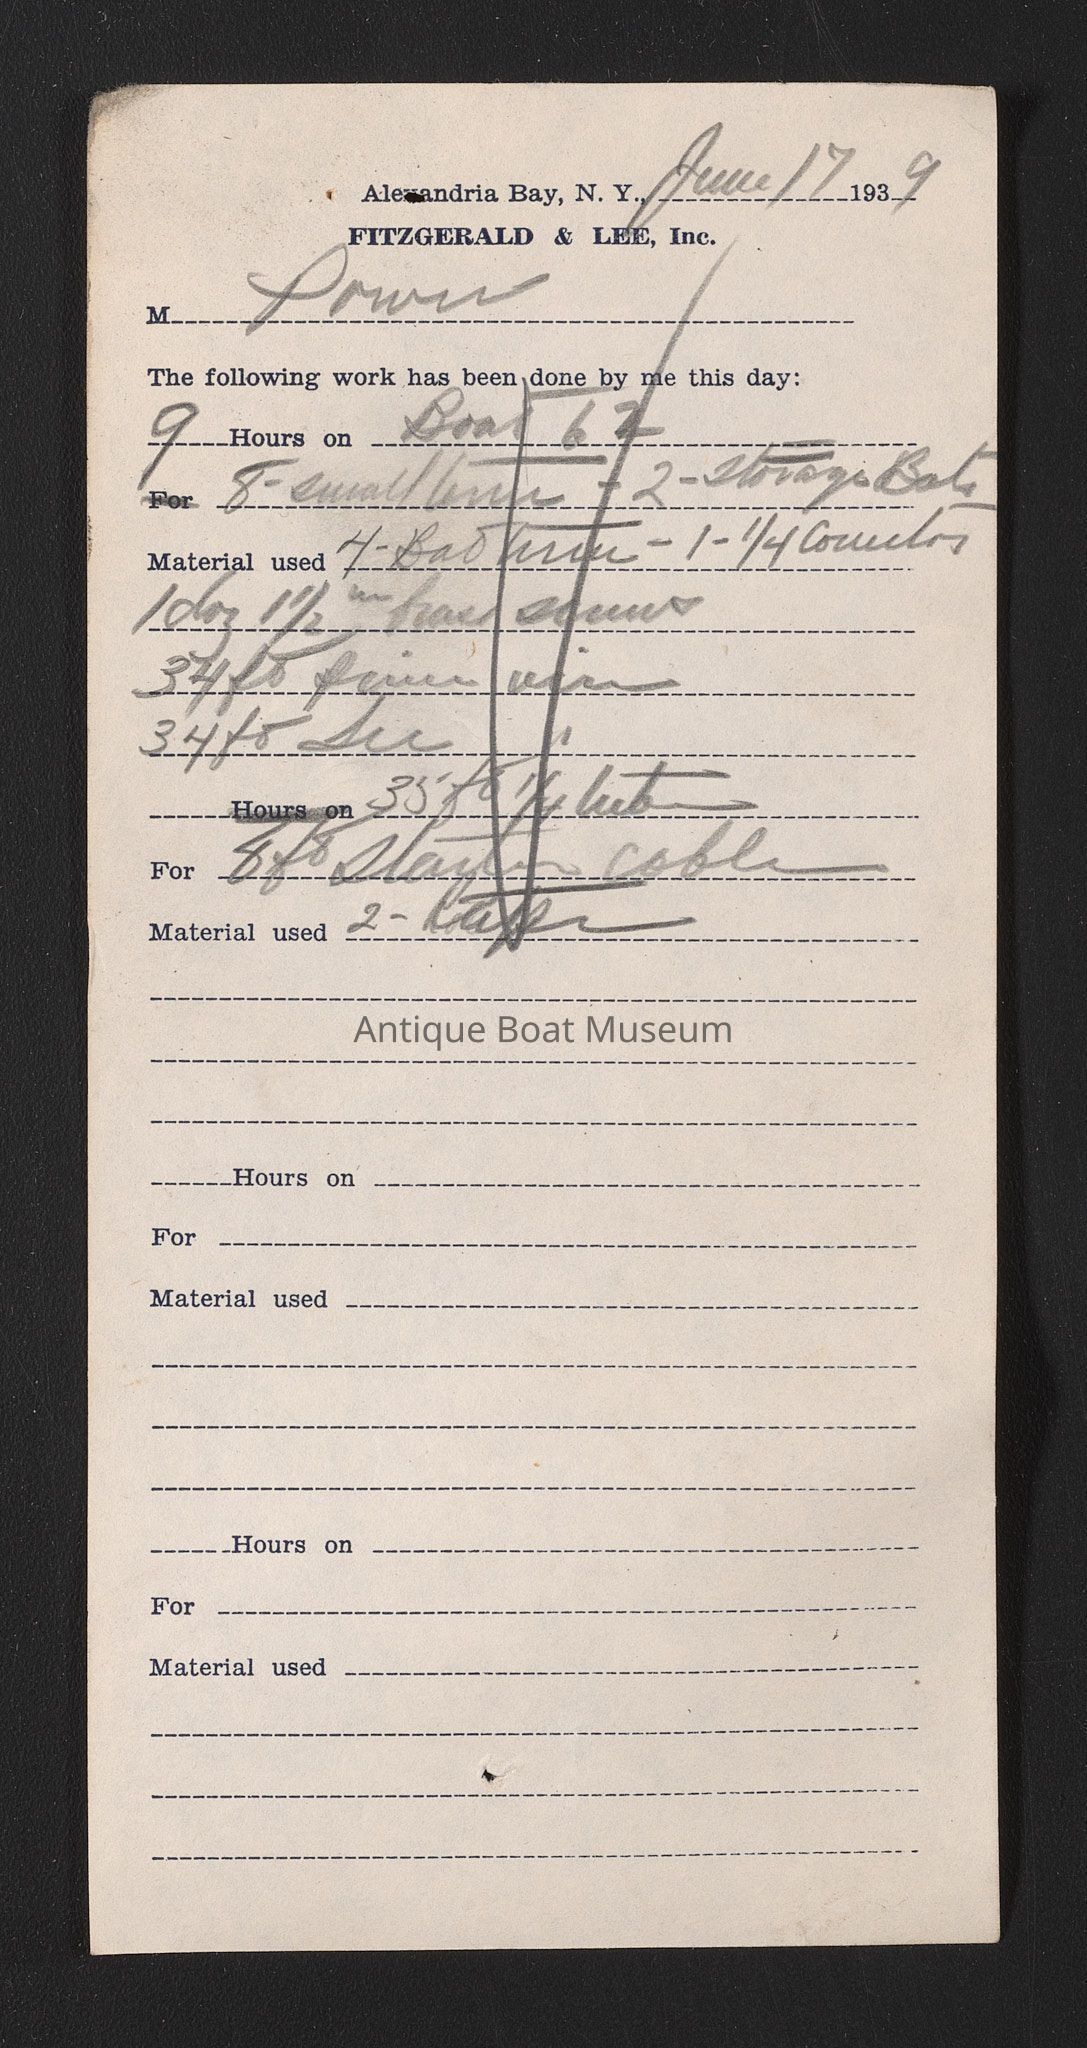 Alexandria Bay, N. Y., June 17 1939
FITZGERALD & LEE, Inc.
M Power
The following work has been done by me this day:
9 Hours on Boat 62
For 8 - small - 2 - storage Bats
Material used 4 - Bat - 1 - 1/4
1 doz 1 1/2 in brass screws
34 ft
34 ft "
Hours on 35 ft 1/4
For 8 ft Starter cable
Material used 2 -
Antique Boat Museum
Hours on
For
Material used
Hours on
For
Material used